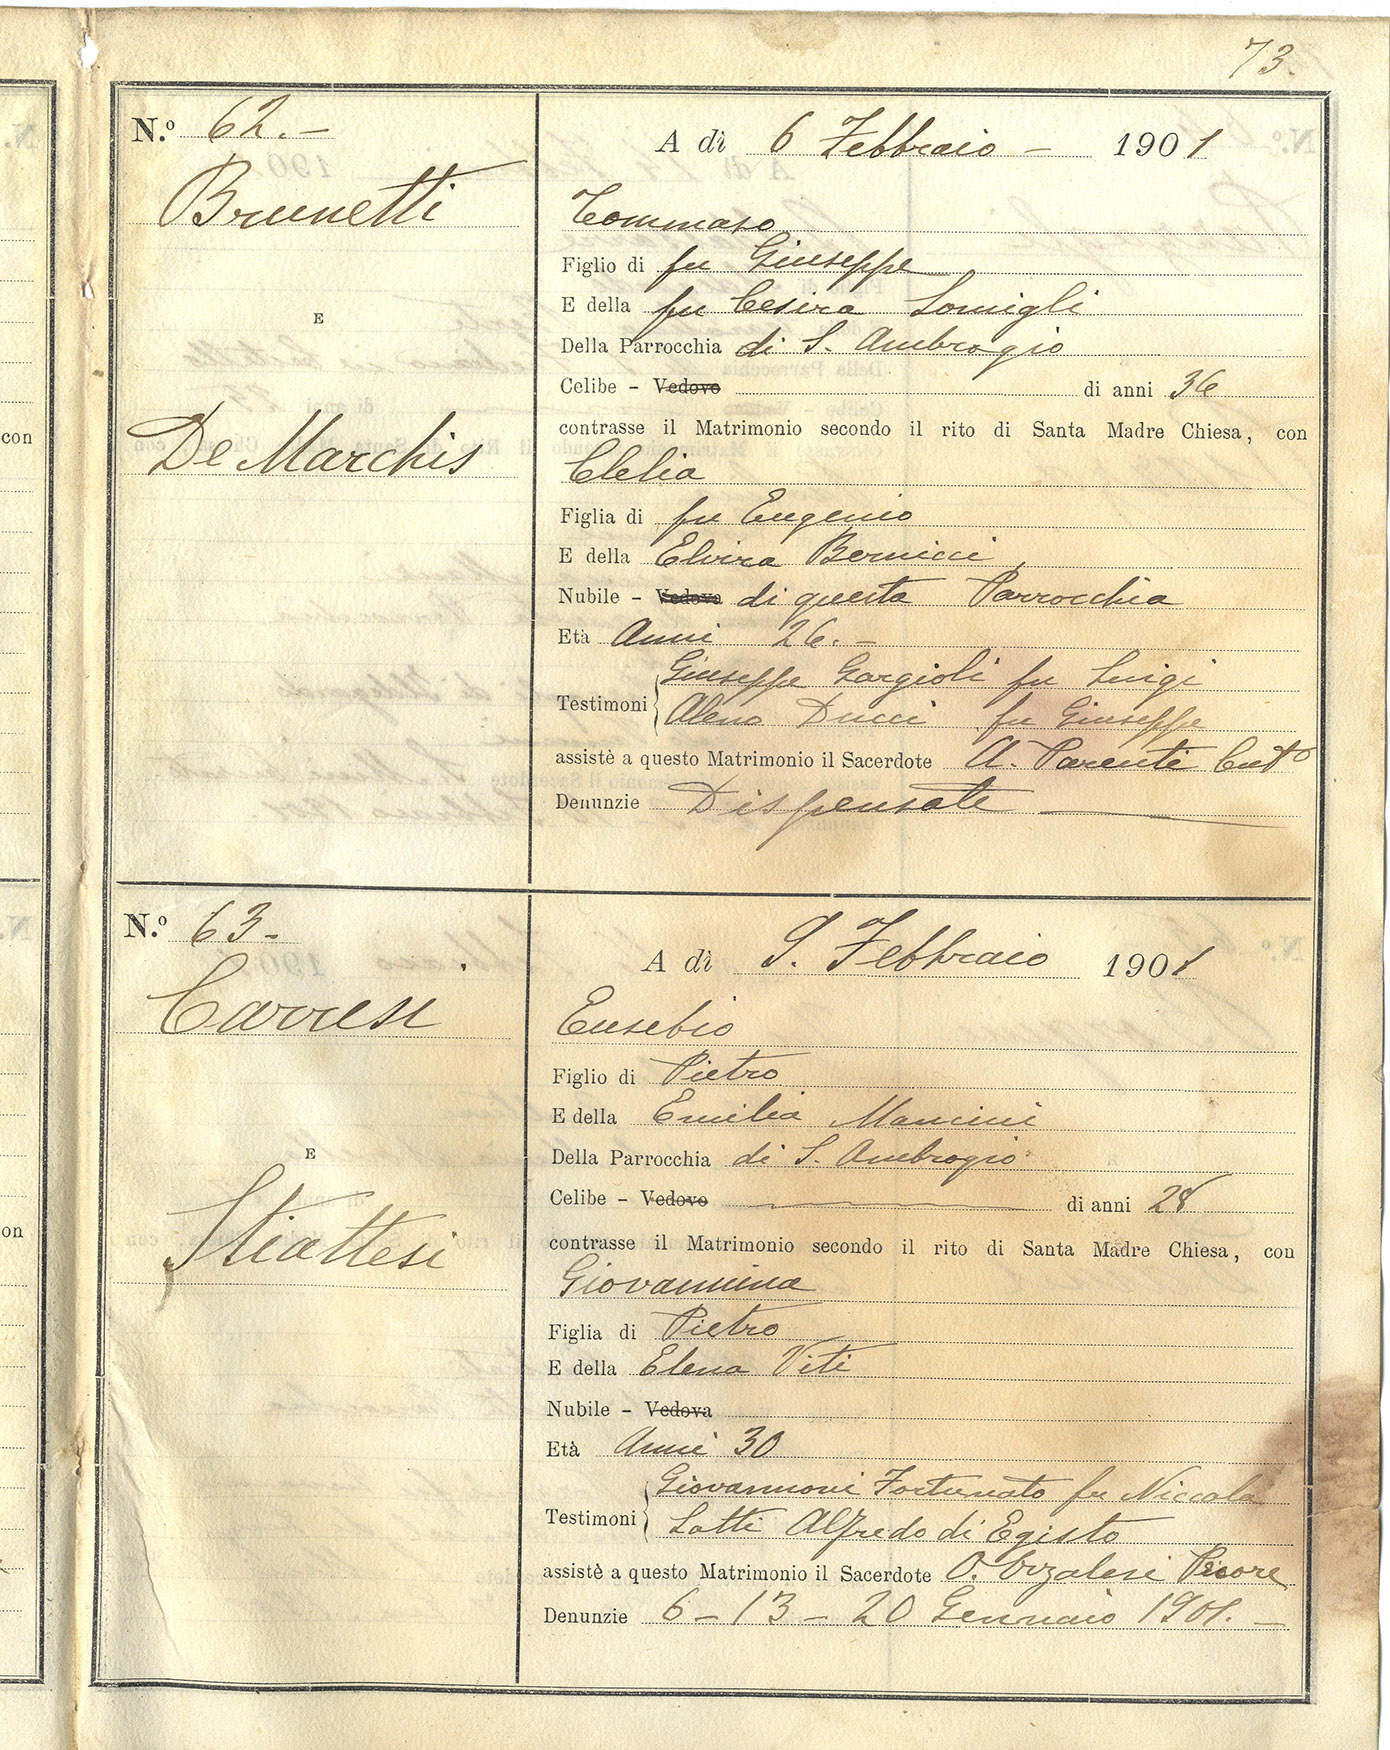 73.
N.º 62.-
Brunetti
E
De Marchis
A dì 6 Febbraio - 1901
Tommaso
Figlio di fu Giuseppe
E della fu Cesira Somigli
Della Parrocchia di S. Ambrogio
Celibe - Vedovo di anni 36
contrasse il Matrimonio secondo il rito di Santa Madre Chiesa, con
Clelia
Figlia di fu Eugenio
E della Elvira Bernicci
Nubile - Vedova di questa Parrocchia
Età Anni 26.-
Giuseppe Gargioli fu Luigi
Testimoni
Ducci fu Giuseppe
assistè a questo Matrimonio il Sacerdote A. Parenti Cur.to
Denunzie Dispensate
N.º 63-
Carresi
E
Stiattesi
A dì 9. Febbraio 1901
Eusebio
Figlio di Pietro
E della Emilia Mancini
Della Parrocchia di S. Ambrogio
Celibe - Vedovo di anni 28
contrasse il Matrimonio secondo il rito di Santa Madre Chiesa, con
Giovannina
Figlia di Pietro
E della Elena Viti
Nubile - Vedova
Età Anni 30
Giovannoni Fortunato fu Niccola
Testimoni
Lotti Alfredo di Egisto
assistè a questo Matrimonio il Sacerdote O. Orzalesi Priore
Denunzie 6 - 13 - 20 Gennaio 1901.-
con
on